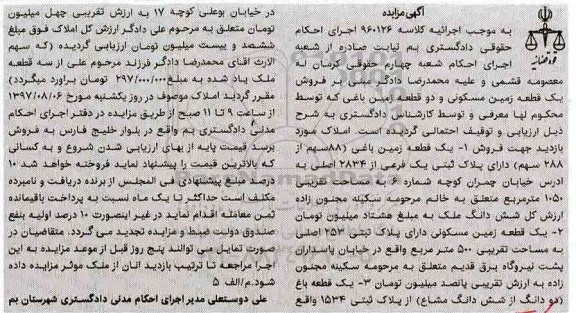 آگهی مزایده
به موجب اجرائیه کلاسه ۹۶۰۱۲۶ اجرای احکام
حقوقی دادگستری بم نیابت صادره از شعبه
اجرای احکام شعبه چهارم حقوقی کرمان له
معصومه قشمی و علیه محمدرضا دادگر مبنی بر فروش
یک قطعه زمین مسکونی و دو قطعه زمین باغی که توسط
محکوم لها معرفی و توسط کارشناس دادگستری به شرح
ذیل ارزیابی و توقیف احتمالی گردیده است. املاک مورد
بازدید جهت فروش ۱- یک قطعه زمین باغی (۸۸سهم از
۲۸۸ سهم) دارای پلاک ثبتی یک فرعی از ۲۸۳۴ اصلی به
ادرس خیابان چمران کوچه شماره ۲ به مساحت تقریبی
۱۰۵۰ مترمربع متعلق به خانم مرحومه سکینه مجنون زاده
ارزش کل شش دانگ ملک به مبلغ هشتاد میلیون تومان
۲- یک قطعه زمین مسکونی دارای پلاک ثبتی ۲۵۳ اصلی
به مساحت تقریبی ۵۰۰ متر مربع واقع در خیابان پاسداران
پشت نیروگاه برق قدیم متعلق به مرحومه سکینه مجنون
زاده به ارزش تقریبی پانصد میلیون تومان ۳- یک قطعه باغ
(دو دانگ از شش دانگ مشاع) از پلاک ثبتی ۱۵۳۴ واقع
در خیابان بوعلی کوچه ۱۷ به ارزش تقریبی چهل میلیون
تومان متعلق به مرحوم علی دادگر ارزش کل املاک فوق مبلغ
ششصد و بیست میلیون تومان ارزیابی گردیده (که سهم
الارث اقای محمدرضا دادگر فرزند مرحوم علی از سه قطعه
ملک یاد شده به مبلغ ۲۹۷/۰۰۰/۰۰۰ تومان براورد میگردد)
مقرر گردید املاک موصوف در روز یکشنبه مورخ ۱۳۹۷/۰۸/۰۶
از ساعت ۹ تا ۱۱ صبح از طریق مزایده در دفتر اجرای احکام
مدنی دادگستری بم واقع در بلوار خلیج فارس به فروش
برسد قیمت پایه از بهای ارزیابی شدن شروع و به کسانی
که بالاترین قیمت را پیشنهاد نماید فروخته خواهد شد ۱۰
درصد مبلغ پیشنهادی فی المجلس از برنده دریافت و نامبرده
مکلف است حداکثر تا یک ماه نسبت به پرداخت باقیمانده
ثمن معامله اقدام نماید در غیر اینصورت ۱۰ درصد اولیه بنفع
صندوق دولت ضبط و مزایده تجدید می گردد. متقاضیان در
صورت تمایل می توانند پنج روز قبل از موعد مزایده به این
اجرا مراجعه تا ترتیب بازدید انان از ملک موثر مزایده داده
شود.م/الف ۵
علی دوستعلی مدیر اجرای احکام مدنی دادگستری شهرستان بم